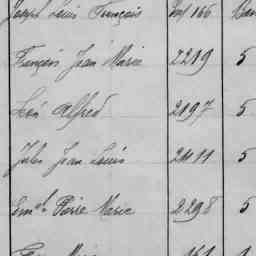 Joseph Louis François 166 Bar
François Jean Marie 2219 5
Léon Alfred 2197 5
Jules Jean Louis 2411 5
Em.el Pierre Marie 2298 5